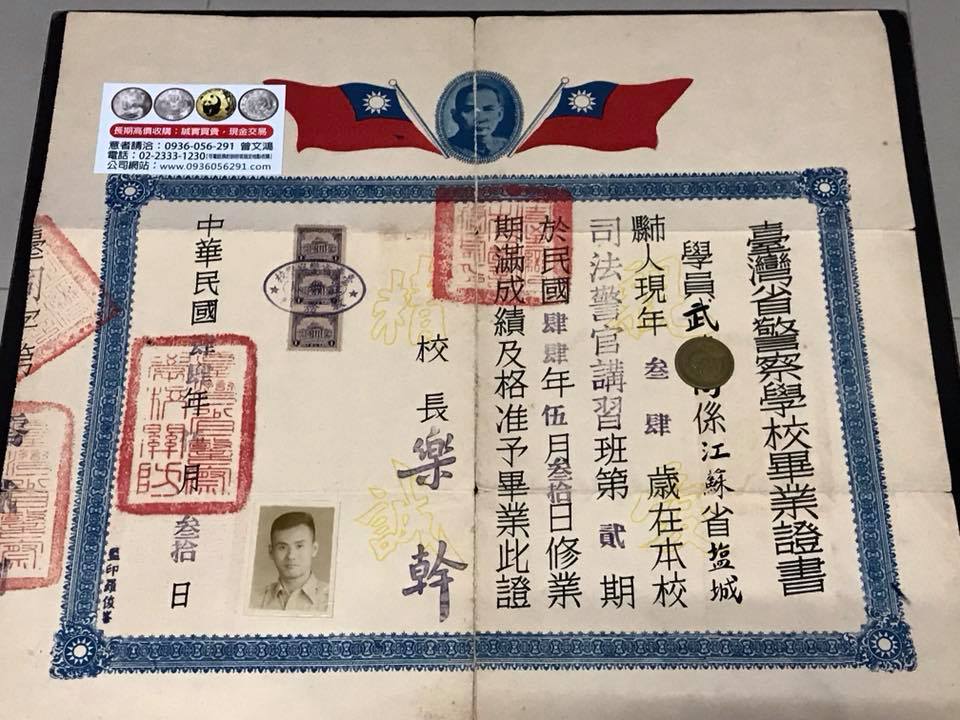 長期高價收購；誠實買賣，現金交易
意者請洽：0936-056-291 曾文鴻
電話：02-2333-1230
公司網站：www.0936056291.com
臺灣省警察學校畢業證書
學員武 係江蘇省塩城
縣市人現年叁肆歲在本校
司法警官講習班第貳期
於民國肆肆年伍月叁拾日修業
期滿成績及格准予畢業此證
校長樂幹
中華民國肆肆年 月叁拾日
精誠